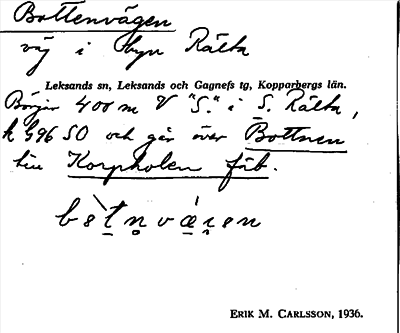 Bottenvägen
väg i byn Rälta
Leksands sn, Leksands och Gagnefs tg, Kopparbergs län.
Börjar 400 m V "S." i S. Rälta,
k 596 SO och går över Bottnen
till Korpholen fäb.
ERIK M. CARLSSON, 1936.